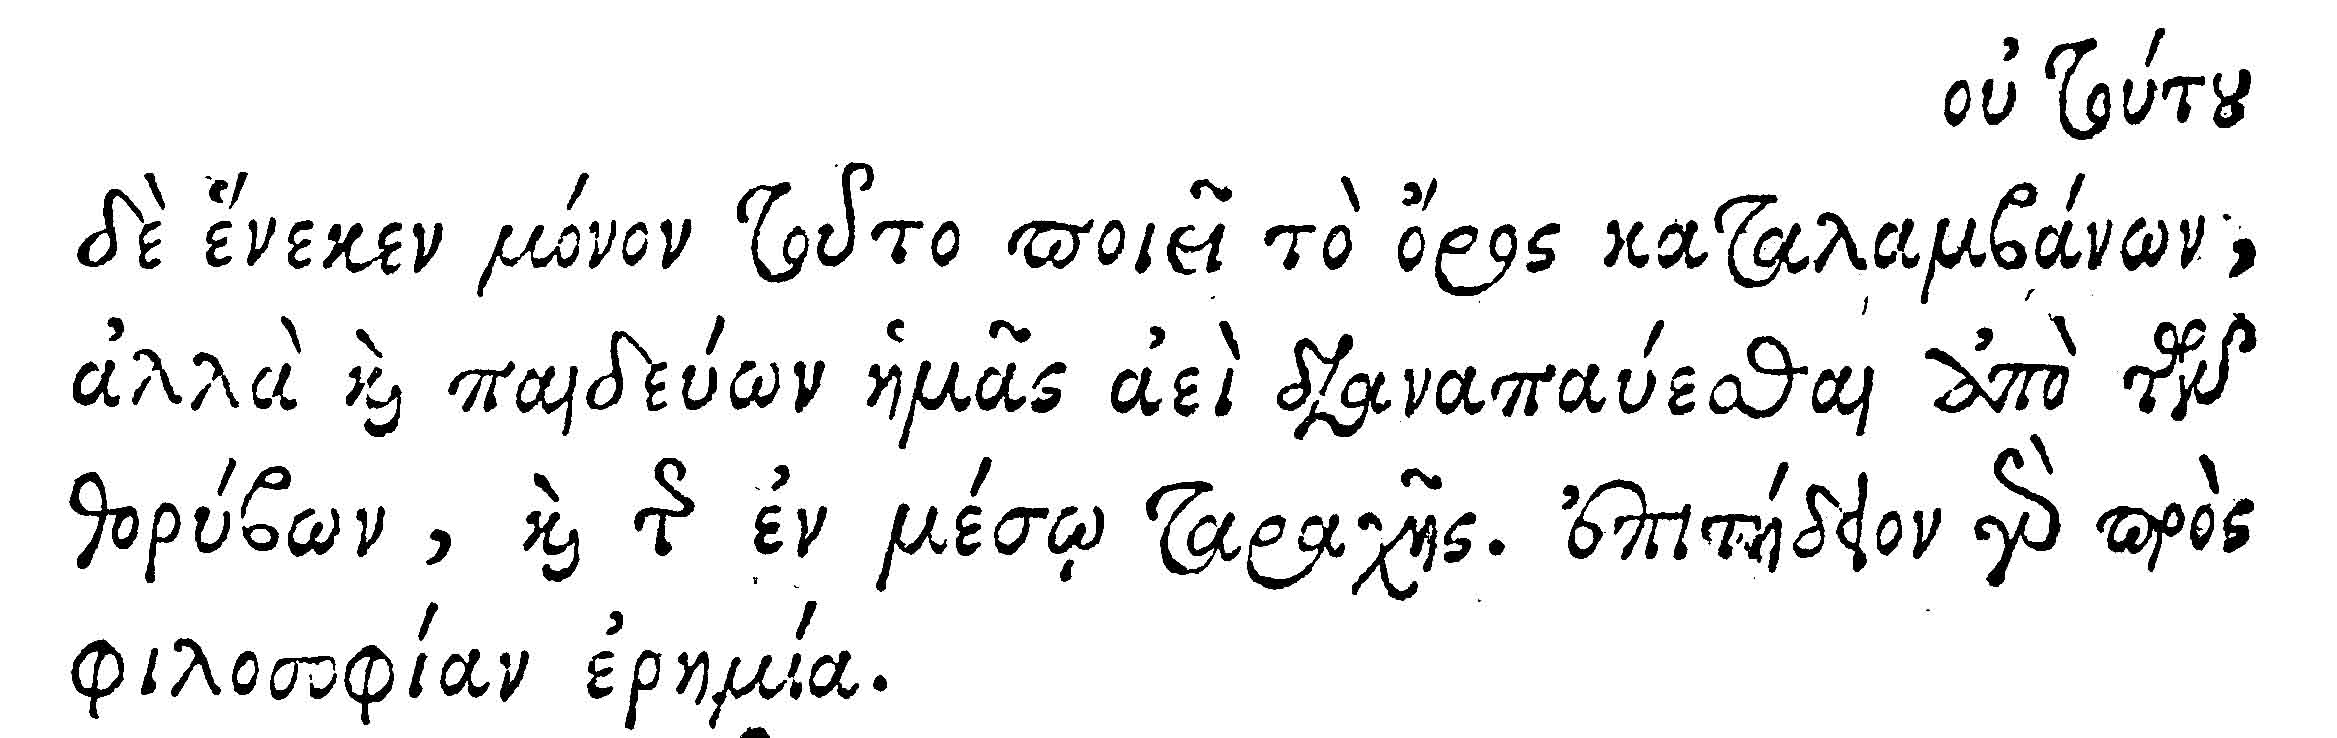 οὐ τούτου
δὲ ἕνεκεν μόνον τοῦτο ποιεῖ τὸ ὄρος καταλαμβάνων,
ἀλλὰ καὶ παιδεύων ἡμᾶς ἀεὶ διαναπαύεσθαι ἀπὸ τῶν
θορύβων, καὶ τῆς ἐν μέσῳ ταραχῆς. ἐπιτήδειον γὰρ πρὸς
φιλοσοφίαν ἐρημία.